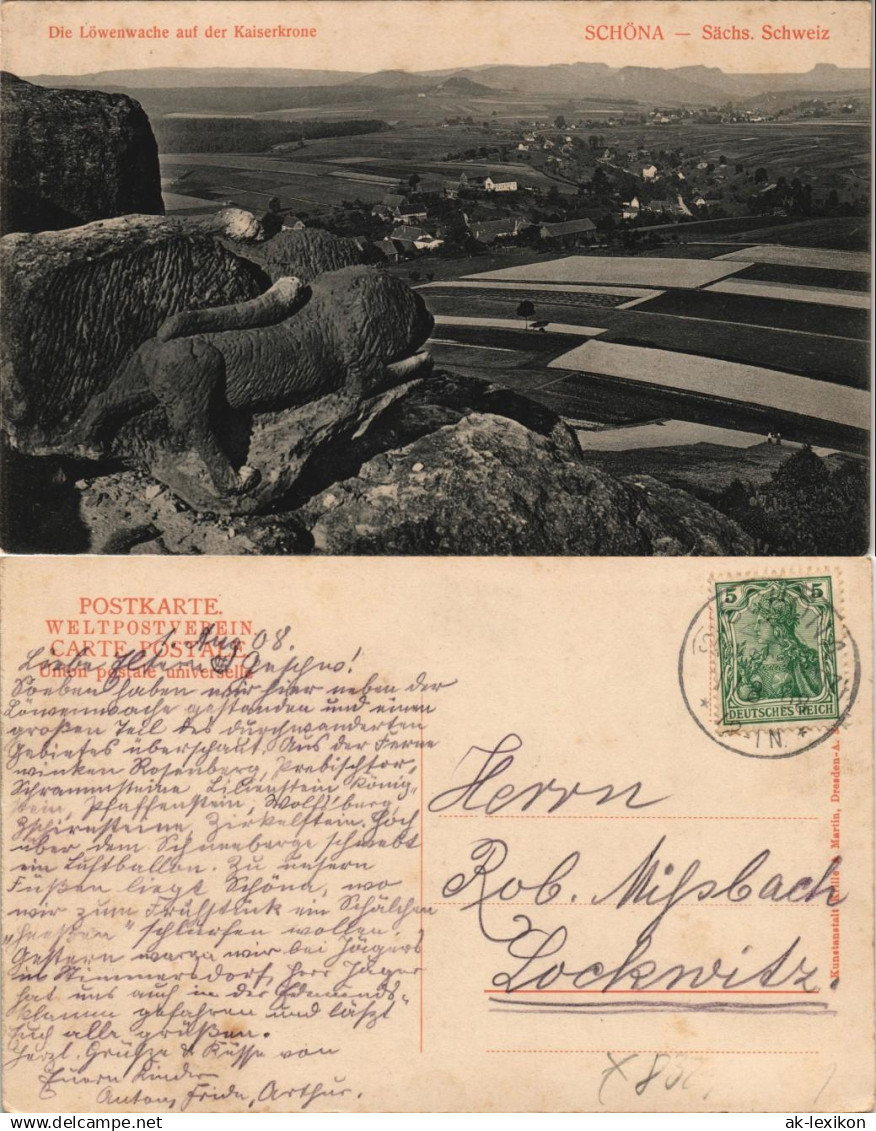 Die Löwenwache auf der Kaiserkrone
SCHÖNA — Sächs. Schweiz
POSTKARTE.
WELTPOSTVEREIN.
CARTE POSTALE
Union postale universelle
Aug 08.
Liebe Eltern
Soeben haben wir hier neben der
Löwenwache gestanden und einen
großen Teil des durchwanderten
Gebietes überschaut. Aus der Ferne
winken Rosenberg, Prebischtor,
Schrammsteine, Lilienstein, König-
stein, Pfaffenstein, Wolfsberg,
Zschirnsteine, Zirkelstein. Hoch
über dem Schneeberge schwebt
ein Luftballon. Zu unsern
Füßen liegt Schöna, wo
wir zum Frühstück ein Schälchen
"Heeßen" schlürfen wollen.
Gestern waren wir bei Jägers
in Stimmersdorf, Herr Jäger
hat uns auch in der Edmunds-
klamm gefahren und läßt
Euch alle grüßen.
Herzl. Grüße & Küsse von
Euern Kinder
Anton, Frida, Arthur.
5 5
DEUTSCHES REICH
Herrn
Rob. Mißbach
Lockwitz.
Kunstanstalt Krille & Martin, Dresden-A.
ak-lexikon